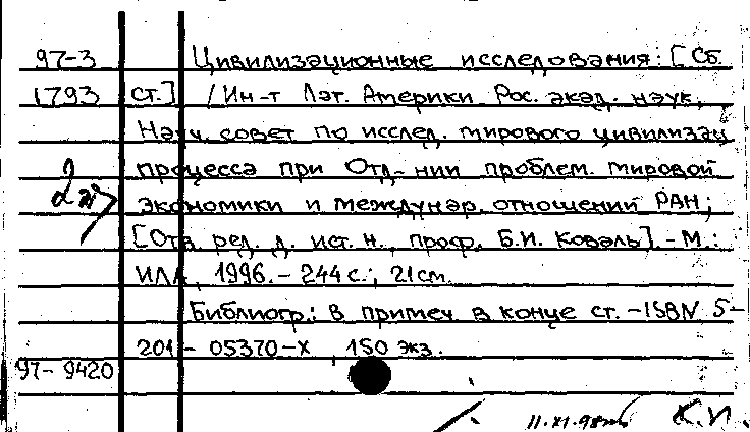 97-3 Цивилизационные исследования: [Сб.
1793 ст.] / Ин-т Лат. Америки Рос. акад. наук,
Науч. совет по исслед. мирового цивилизац.
процесса при Отд-нии проблем. мировой
2 экономики и междунар. отношений РАН;
[Отв. ред. д. ист. н., проф. Б.И. Коваль]. - М.:
ИЛА, 1996. - 244 с.; 21 см.
Библиогр.: в примеч. в конце ст. - ISBN 5-
201-05370-X, 150 экз.
97-9420
11.XI.98
К.И.